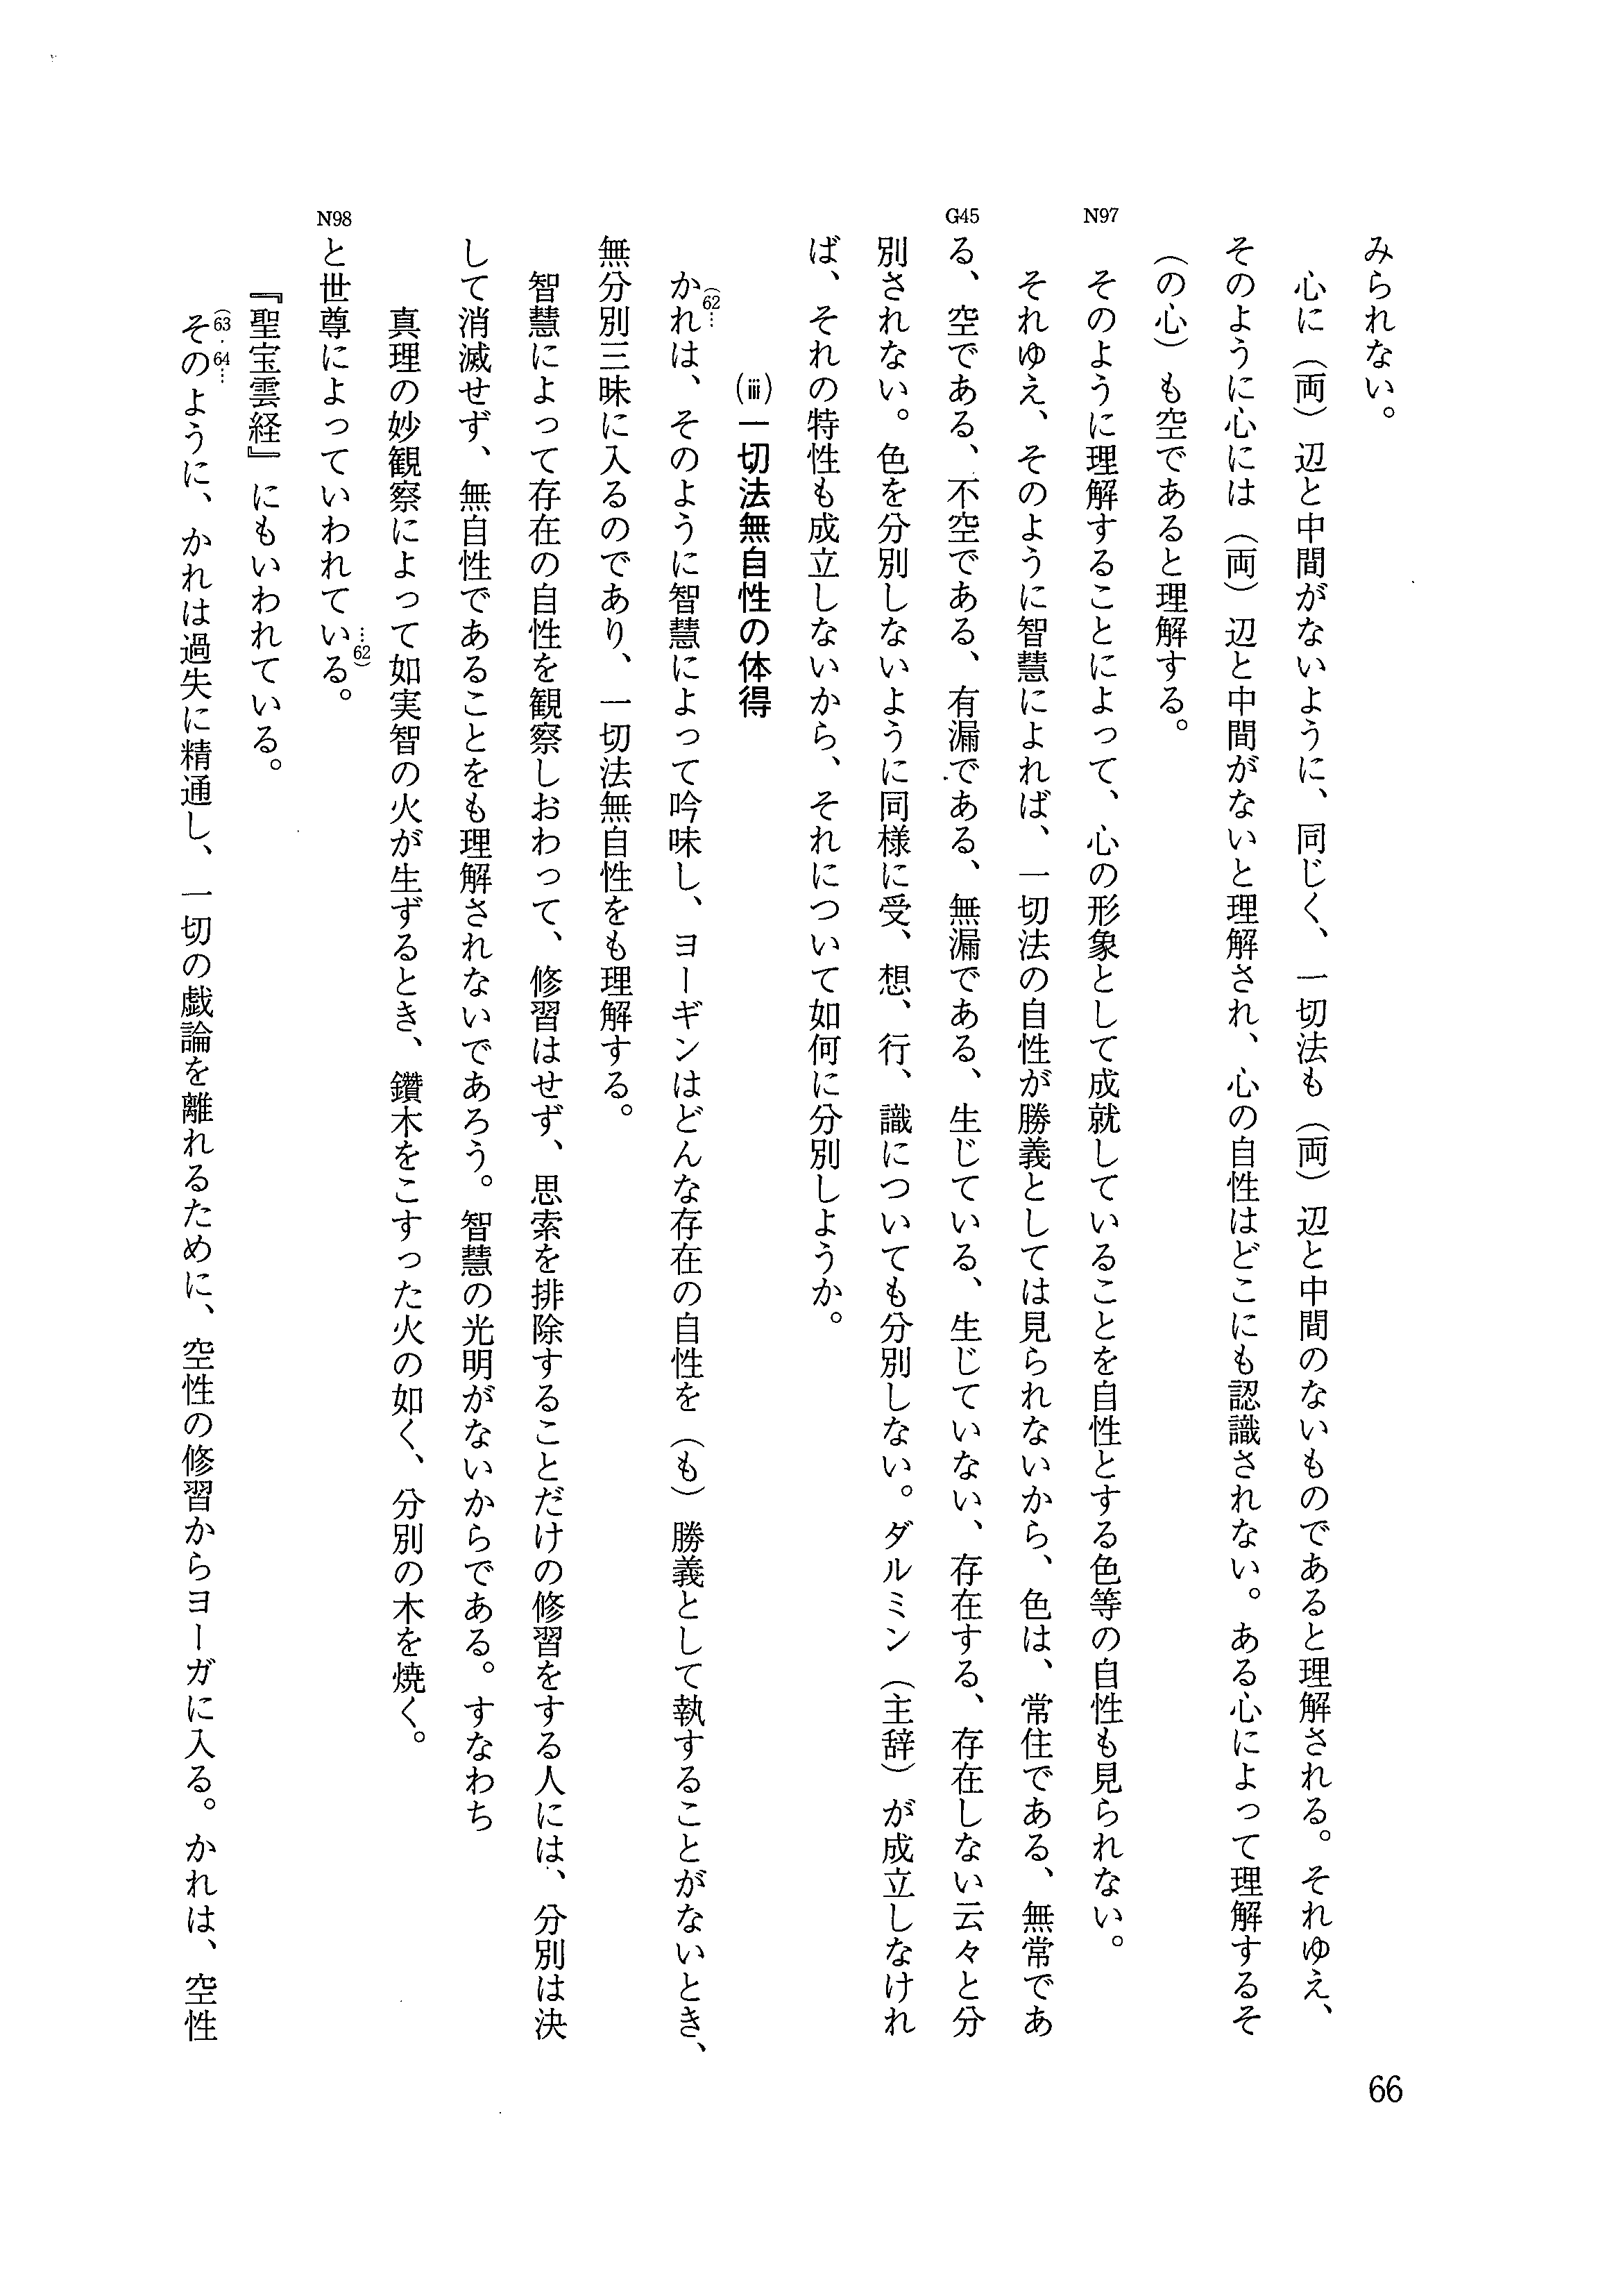 みられない。
　心に（両）辺と中間がないように、同じく、一切法も（両）辺と中間のないものであると理解される。それゆえ、
そのように心には（両）辺と中間がないと理解され、心の自性はどこにも認識されない。ある心によって理解するそ
（の心）も空であると理解する。
N97
　そのように理解することによって、心の形象として成就していることを自性とする色等の自性も見られない。
　それゆえ、そのように智慧によれば、一切法の自性が勝義としては見られないから、色は、常住である、無常であ
G45
る、空である、不空である、有漏である、無漏である、生じている、生じていない、存在する、存在しない云々と分
別されない。色を分別しないように同様に受、想、行、識についても分別しない。ダルミン（主辞）が成立しなけれ
ば、それの特性も成立しないから、それについて如何に分別しようか。
(ⅲ) 一切法無自性の体得
(62…
　かれは、そのように智慧によって吟味し、ヨーギンはどんな存在の自性を（も）勝義として執することがないとき、
無分別三昧に入るのであり、一切法無自性をも理解する。
　智慧によって存在の自性を観察しおわって、修習はせず、思索を排除することだけの修習をする人には、分別は決
して消滅せず、無自性であることをも理解されないであろう。智慧の光明がないからである。すなわち
　　真理の妙観察によって如実智の火が生ずるとき、鑽木をこすった火の如く、分別の木を焼く。
N98
と世尊によっていわれている。
…62)
　『聖宝雲経』にもいわれている。
(63・64…
　　そのように、かれは過失に精通し、一切の戯論を離れるために、空性の修習からヨーガに入る。かれは、空性
66